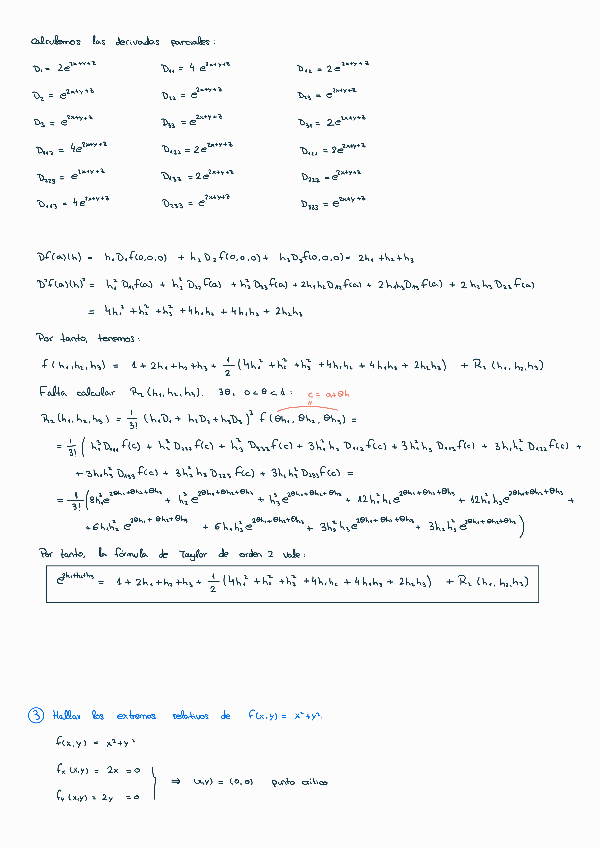 Calculemos las derivadas parciales:
D₁ = 2e^{2x+y+z} D₁₁ = 4e^{2x+y+z} D₁₂ = 2e^{2x+y+z}
D₂ = e^{2x+y+z} D₂₂ = e^{2x+y+z} D₂₃ = e^{2x+y+z}
D₃ = e^{2x+y+z} D₃₃ = e^{2x+y+z} D₃₁ = 2e^{2x+y+z}
D₁₁₂ = 4e^{2x+y+z} D₁₂₂ = 2e^{2x+y+z} D₁₁₁ = 8e^{2x+y+z}
D₂₂₃ = e^{2x+y+z} D₁₃₃ = 2e^{2x+y+z} D₂₂₂ = e^{2x+y+z}
D₁₁₃ = 4e^{2x+y+z} D₂₃₃ = e^{2x+y+z} D₃₃₃ = e^{2x+y+z}
Df(a)(h) = h₁D₁f(0,0,0) + h₂D₂f(0,0,0) + h₃D₃f(0,0,0) = 2h₁+h₂+h₃
D²f(a)(h)² = h₁²D₁₁f(a) + h₂²D₂₂f(a) + h₃²D₃₃f(a) + 2h₁h₂D₁₂f(a) + 2h₁h₃D₁₃f(a) + 2h₂h₃D₂₃f(a)
= 4h₁² + h₂² + h₃² + 4h₁h₂ + 4h₁h₃ + 2h₂h₃
Por tanto, tenemos:
f(h₁,h₂,h₃) = 1 + 2h₁+h₂+h₃ + 1/2 (4h₁² + h₂² + h₃² + 4h₁h₂ + 4h₁h₃ + 2h₂h₃) + R₂(h₁,h₂,h₃)
Falta calcular R₂(h₁,h₂,h₃). ∃θ, 0<θ<1: c = a+θh
R₂(h₁,h₂,h₃) = 1/3! (h₁D₁ + h₂D₂ + h₃D₃)³ f(θh₁, θh₂, θh₃) =
= 1/3! (h₁³D₁₁₁f(c) + h₂³D₂₂₂f(c) + h₃³D₃₃₃f(c) + 3h₁²h₂D₁₁₂f(c) + 3h₁²h₃D₁₁₃f(c) + 3h₁h₂²D₁₂₂f(c) +
+ 3h₁h₃²D₁₃₃f(c) + 3h₂²h₃D₂₂₃f(c) + 3h₂h₃²D₂₃₃f(c) =
= 1/3! (8h₁³e^{2θh₁+θh₂+θh₃} + h₂³e^{2θh₁+θh₂+θh₃} + h₃³e^{2θh₁+θh₂+θh₃} + 12h₁²h₂e^{2θh₁+θh₂+θh₃} + 12h₁²h₃e^{2θh₁+θh₂+θh₃} +
+ 6h₁h₂²e^{2θh₁+θh₂+θh₃} + 6h₁h₃²e^{2θh₁+θh₂+θh₃} + 3h₂²h₃e^{2θh₁+θh₂+θh₃} + 3h₂h₃²e^{2θh₁+θh₂+θh₃})
Por tanto, la fórmula de Taylor de orden 2 vale:
e^{2h₁+h₂+h₃} = 1 + 2h₁+h₂+h₃ + 1/2 (4h₁² + h₂² + h₃² + 4h₁h₂ + 4h₁h₃ + 2h₂h₃) + R₂(h₁,h₂,h₃)
③ Hallar los extremos relativos de f(x,y) = x²+y².
f(x,y) = x²+y²
fx(x,y) = 2x = 0
⇒ (x,y) = (0,0) punto crítico
fy(x,y) = 2y = 0